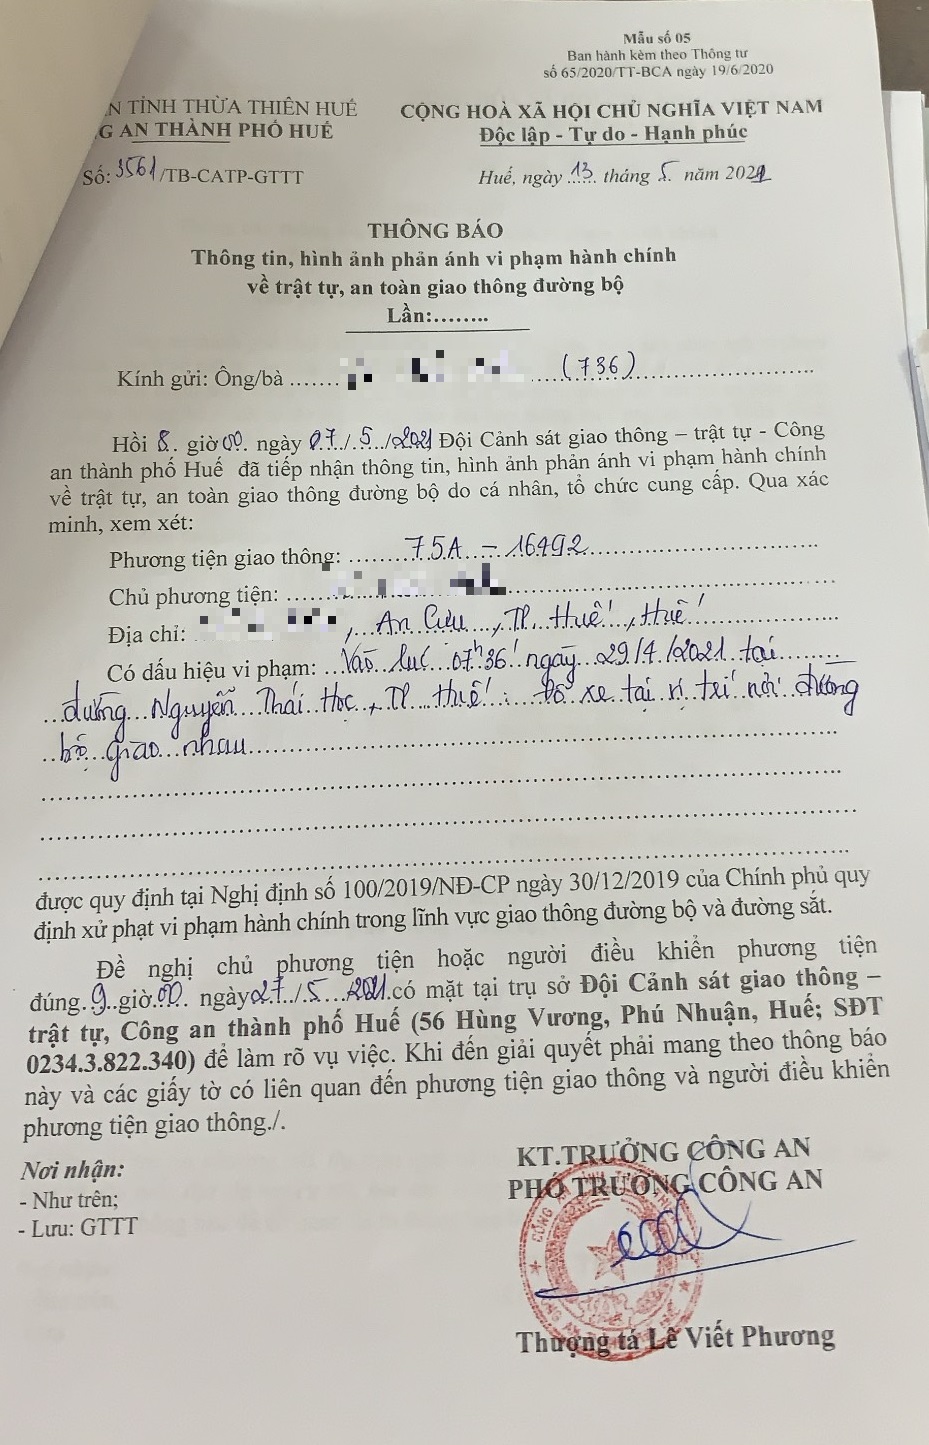 Mẫu số 05
Ban hành kèm theo Thông tư
số 65/2020/TT-BCA ngày 19/6/2020
N TỈNH THỪA THIÊN HUẾ
G AN THÀNH PHỐ HUẾ
CỘNG HOÀ XÃ HỘI CHỦ NGHĨA VIỆT NAM
Độc lập - Tự do - Hạnh phúc
Số: 3561/TB-CATP-GTTT
Huế, ngày 13 tháng 5 năm 2021
THÔNG BÁO
Thông tin, hình ảnh phản ánh vi phạm hành chính
về trật tự, an toàn giao thông đường bộ
Lần:........
Kính gửi: Ông/bà ....... (736)
Hồi 8. giờ 00. ngày 07./.5../2021 Đội Cảnh sát giao thông – trật tự - Công
an thành phố Huế đã tiếp nhận thông tin, hình ảnh phản ánh vi phạm hành chính
về trật tự, an toàn giao thông đường bộ do cá nhân, tổ chức cung cấp. Qua xác
minh, xem xét:
Phương tiện giao thông: 75A – 16492
Chủ phương tiện:
Địa chỉ: , An Cựu, TP. Huế, Huế
Có dấu hiệu vi phạm: Vào lúc 07h36' ngày 29/4/2021 tại
đường Nguyễn Thái Học, TP Huế: Đỗ xe tại vị trí nơi đường
bộ giao nhau
được quy định tại Nghị định số 100/2019/NĐ-CP ngày 30/12/2019 của Chính phủ quy
định xử phạt vi phạm hành chính trong lĩnh vực giao thông đường bộ và đường sắt.
Đề nghị chủ phương tiện hoặc người điều khiển phương tiện
đúng 9 giờ 00 ngày 27/5 2021 có mặt tại trụ sở Đội Cảnh sát giao thông –
trật tự, Công an thành phố Huế (56 Hùng Vương, Phú Nhuận, Huế; SĐT
0234.3.822.340) để làm rõ vụ việc. Khi đến giải quyết phải mang theo thông báo
này và các giấy tờ có liên quan đến phương tiện giao thông và người điều khiển
phương tiện giao thông./.
Nơi nhận:
- Như trên;
- Lưu: GTTT
KT.TRƯỞNG CÔNG AN
PHÓ TRƯỞNG CÔNG AN
Thượng tá Lê Viết Phương